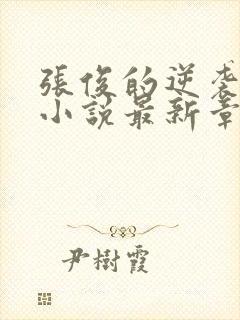 張俊的逆袭
小說最新章
尹樹霞